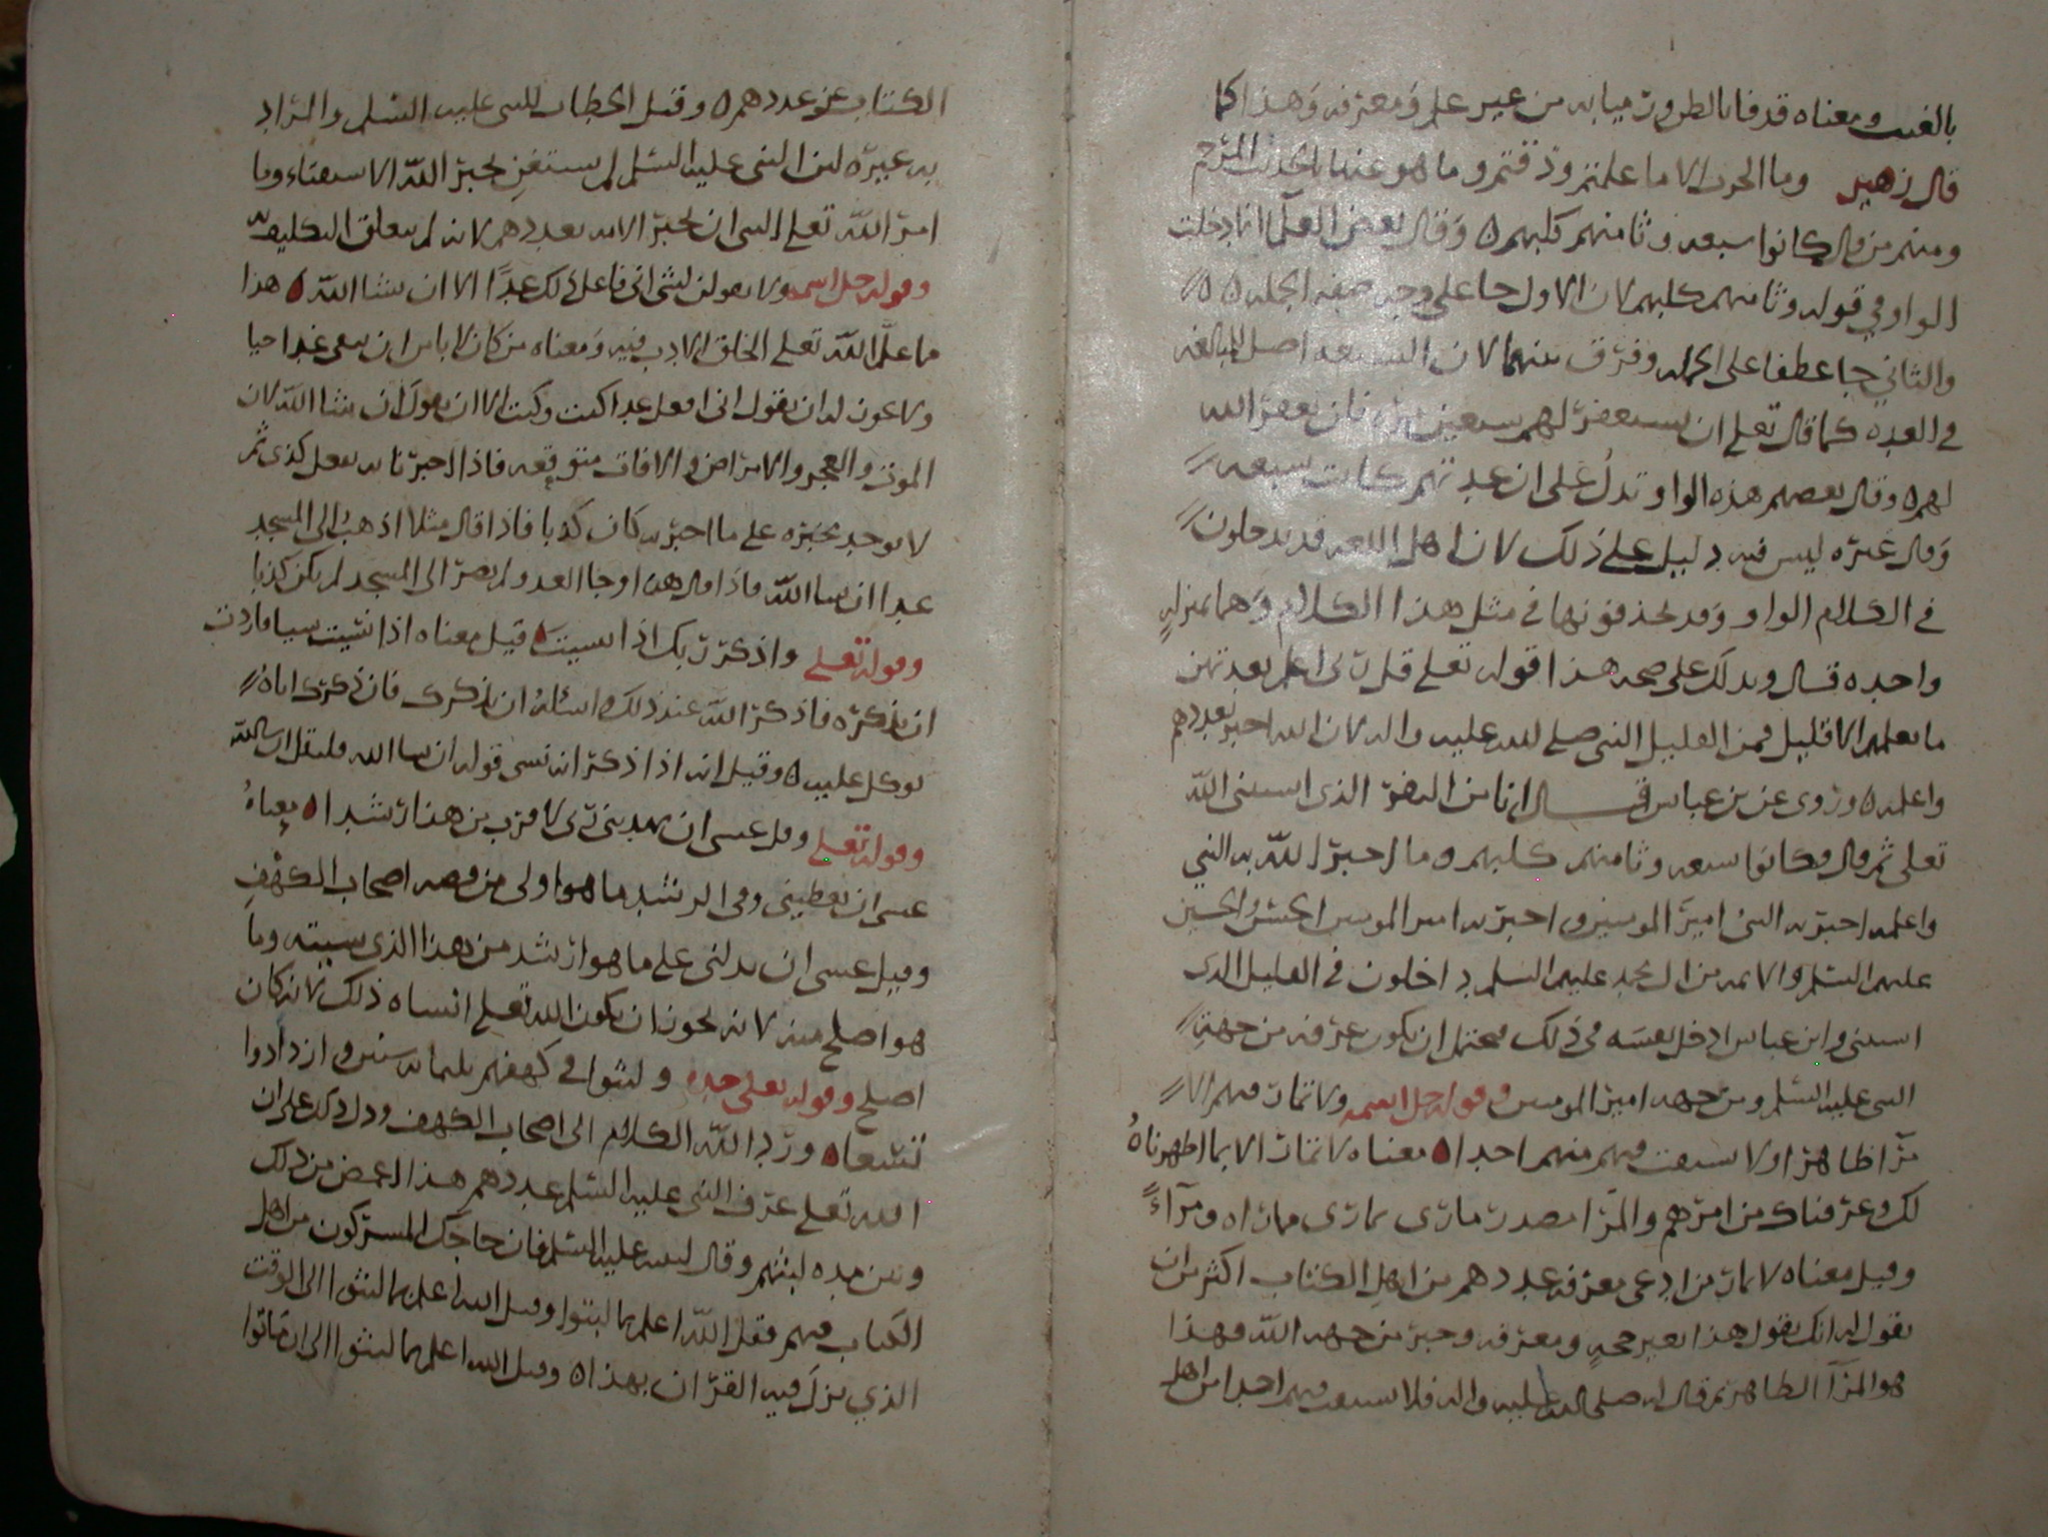 بالغيب ومعناه قدفا بالظن ورميا به من غير علم ومعرفه وهذا كما
قال زهير وما الحرب الا ما علمتم وذقتم وما هو عنها بالحديث المرجم
ومنهم من قال كانوا سبعه وثامنهم كلبهم ٥ وقال بعض العلما انما دخلت
الواو في قوله وثامنهم كلبهم لان الاول جا على وجه صفه الجمله ٥ ٥
والثاني جا عطفا على الجمله وفرق بينهما لان السبعه اصل المبالغه
في العده كما قال تعلى ان تستغفر لهم سبعين مره فلن يغفر الله
لهم ٥ وقال بعضهم هذه الواو تدل على ان عدتهم كانت سبعه
وقال غيره ليس فيه دليل على ذلك لان اهل اللغه قد يدخلون
في الكلام الواو وقد يحذفونها في مثل هذا الكلام وهما بمنزله
واحده قال ويدلك على صحه هذا قوله تعلى قل ربي اعلم بعدتهم
ما يعلمهم الا قليل فمن القليل النبي صلى الله عليه واله لان الله اخبره بعددهم
واعلمه ٥ وروى عن بن عباس قال انا من النفر الذي استثنى الله
تعلى ثم قال وكانوا سبعه وثامنهم كلبهم وما اخبر الله به النبي
واعلمه اخبر به النبي امير المومنين واخبر به امير المومنين الحسن والحسين
عليهم السلم والايمه من ال محمد عليهم السلم داخلون في القليل الذي
استثنى وابن عباس ادخل نفسه في ذلك فيحتمل ان يكون عرفه من جهه
النبي عليه السلم ومن جهه امير المومنين وقوله جل اسمه ولا تمار فيهم الا
مرآ ظاهرا ولا تستفت فيهم منهم احدا ٥ معناه لا تمار الا بما اظهرناه
لك وعرفناك من امرهم والمرا مصدر مارى يمارى مماراه ومرآءً
وقيل معناه لا تمار من ادعى معرفه عددهم من اهل الكتاب اكثر من ان
يقول له انك تقول هذا بغير حجه ومعرفه وخبر من جهه الله فهذا
هو المرآ الظاهر ثم قال له صلى الله عليه واله فلا تستفت فيهم احدا من اهل
الكتاب عن عددهم ٥ وقيل الخطاب للنبي عليه السلم والمراد
به غيره لان النبي عليه السلم لم يستغن بخبر الله الا ستفتاء وما
امر الله تعلى النبي ان يخبر الامه بعددهم لانه لم يتعلق التكليف به
وقوله جل اسمه ولا تقولن لشى انى فاعل ذلك غدًا الا ان يشا الله ٥ هذا
ما علم الله تعلى الخلق الادب فيه ومعناه من كان لا باس ان يبقى غدا حيا
ولا يجوز له ان يقول انى افعل غدا كيت وكيت الا ان يقول ان شا الله لان
الموت والعجز والامراض والافات متوقعه فاذا اخبر بانه يفعل كذى ثم
لا يوجد مخبره على ما اخبر به كان كذبا فاذا قال مثلا اذهب الى المسجد
غدا ان شا الله فاذا قال هذا وجا الغد ولم يصر الى المسجد لم يكن كذبا
وقوله تعلى واذكر ربك اذا نسيت ٥ قيل معناه اذا نسيت شيا فاردت
ان تذكره فاذكر الله عند ذلك واسئله ان يذكرك فان ذكرك اياه
توكل عليه ٥ وقيل انه اذا ذكر انه نسى قوله ان شا الله فليقل ان شا الله
وقوله تعلى وقل عسى ان يهديني ربى لاقرب من هذا رشدا ٥ معناه
عسى ان يعطيني ربى الرشد ما هو اولى من قصه اصحاب الكهف
وقيل عسى ان يدلني على ما هو ارشد من هذا الذى نسيته وما
هو اصلح منه لانه يجوز ان يكون الله تعلى انساه ذلك لانه كان
اصلح وقوله تعلى جده ولبثوا في كهفهم ثلثمايه سنين وازدادوا
تسعا ٥ ورد الله الكلام الى اصحاب الكهف ودل ذلك على ان
الله تعلى عرف النبى عليه السلم عددهم هذا من ذلك
وبين مده لبثهم وقال لنبيه عليه السلم فان حاجك المشركون من اهل
الكتاب فيهم فقل الله اعلم بما لبثوا وقيل الله اعلم بما لبثوا الى الوقت
الذي نزل فيه القران بهذا ٥ وقيل الله اعلم بما لبثوا الى ان ماتوا